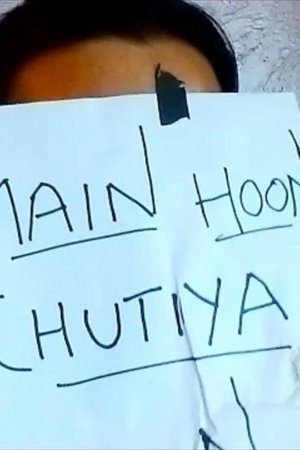 MAIN HOON
CHUTIYA